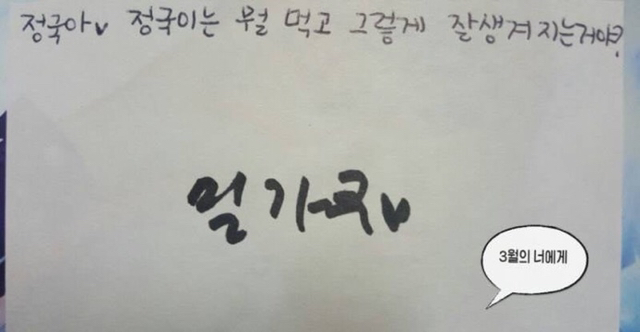 정국아♥ 정국이는 뭘 먹고 그렇게 잘생겨 지는거야?
밀가루♥
3월의 너에게